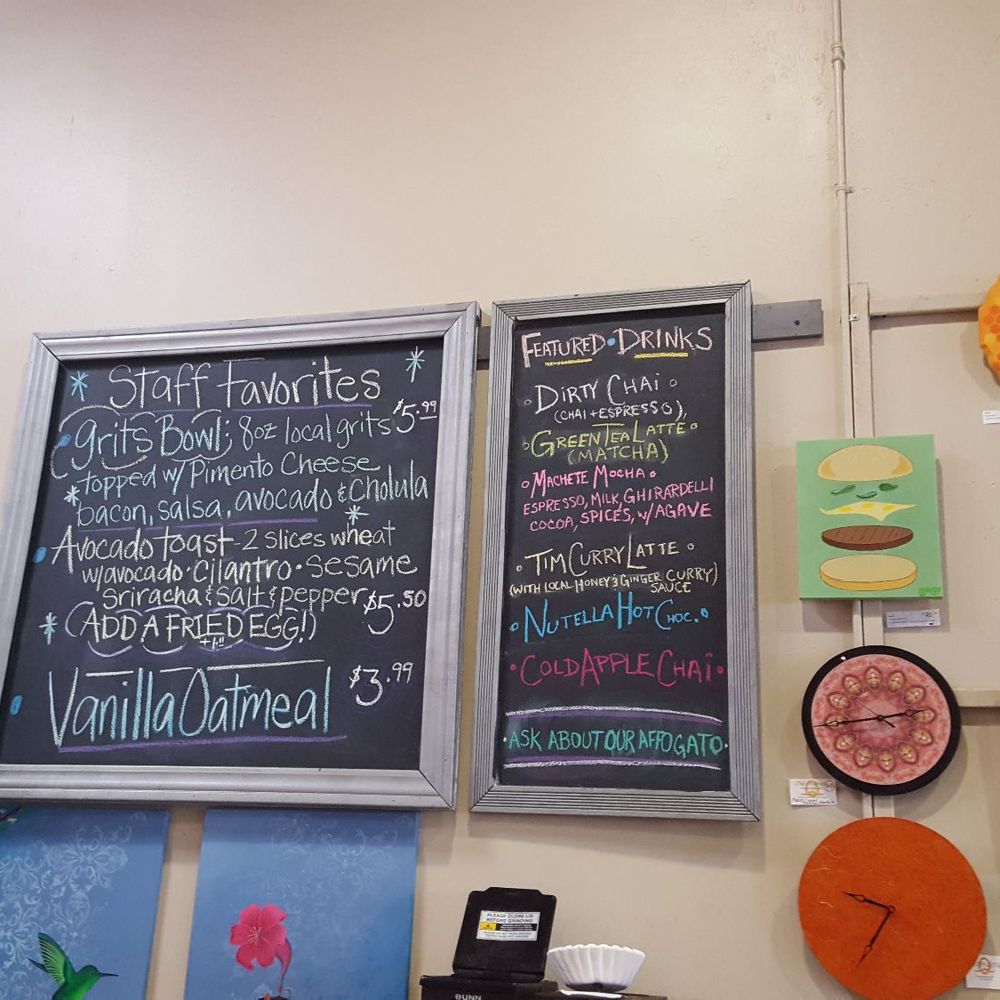 Staff Favorites
Grits Bowl; 8oz local grits $5.99
topped w/ Pimento Cheese
bacon, salsa, avocado & Cholula
Avocado toast - 2 slices wheat
w/ avocado · cilantro · sesame
sriracha & salt & pepper $5.50
(ADD A FRIED EGG!)
Vanilla Oatmeal $3.99
FEATURED · DRINKS
DIRTY CHAI
(CHAI + ESPRESSO)
GREEN TEA LATTE
(MATCHA)
MACHETE MOCHA
ESPRESSO, MILK, GHIRARDELLI
COCOA, SPICES, W/ AGAVE
TIM CURRY LATTE
(WITH LOCAL HONEY & GINGER CURRY)
SAUCE
NUTELLA HOT CHOC.
COLD APPLE CHAI
ASK ABOUT OUR AFFOGATO
PLEASE CLOSE LID
BEFORE GRINDING
BUNN